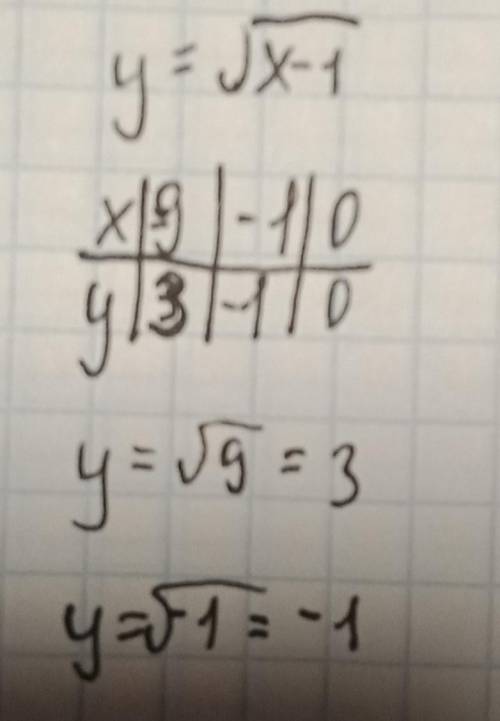 y = √x-1
x | 9 | -1 | 0
y | 3 | -1 | 0
y = √9 = 3
y = √-1 = -1